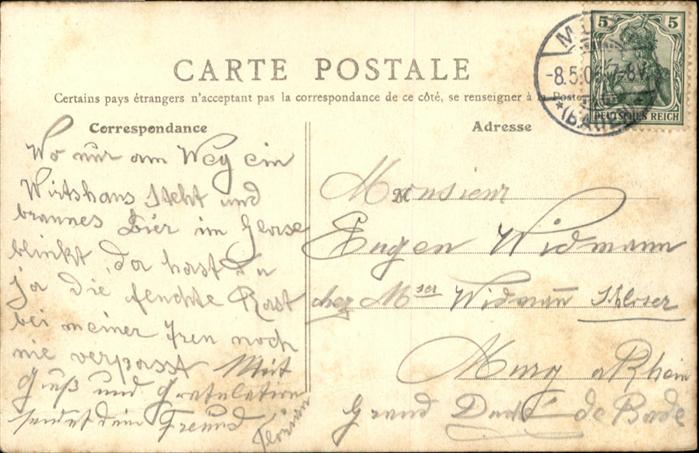 CARTE POSTALE
Certains pays étrangers n'acceptant pas la correspondance de ce côté, se renseigner à la Poste
Correspondance
Wo nur am Weg ein
Wirtshaus steht und
braunes Bier im Glase
blinkt, da hast Du
ja die feuchte Rast
bei meiner Treu noch
nie verpasst Mit
Gruß und Gratulation
sendet dein Freund
Adresse
Monsieur
Eugen Widmann
chez Mser Widmann Schloser
Murg a Rhein
Grand Duché de Bade
5 5
DEUTSCHES REICH
-8.5.06.7-8V.
* (BADEN)